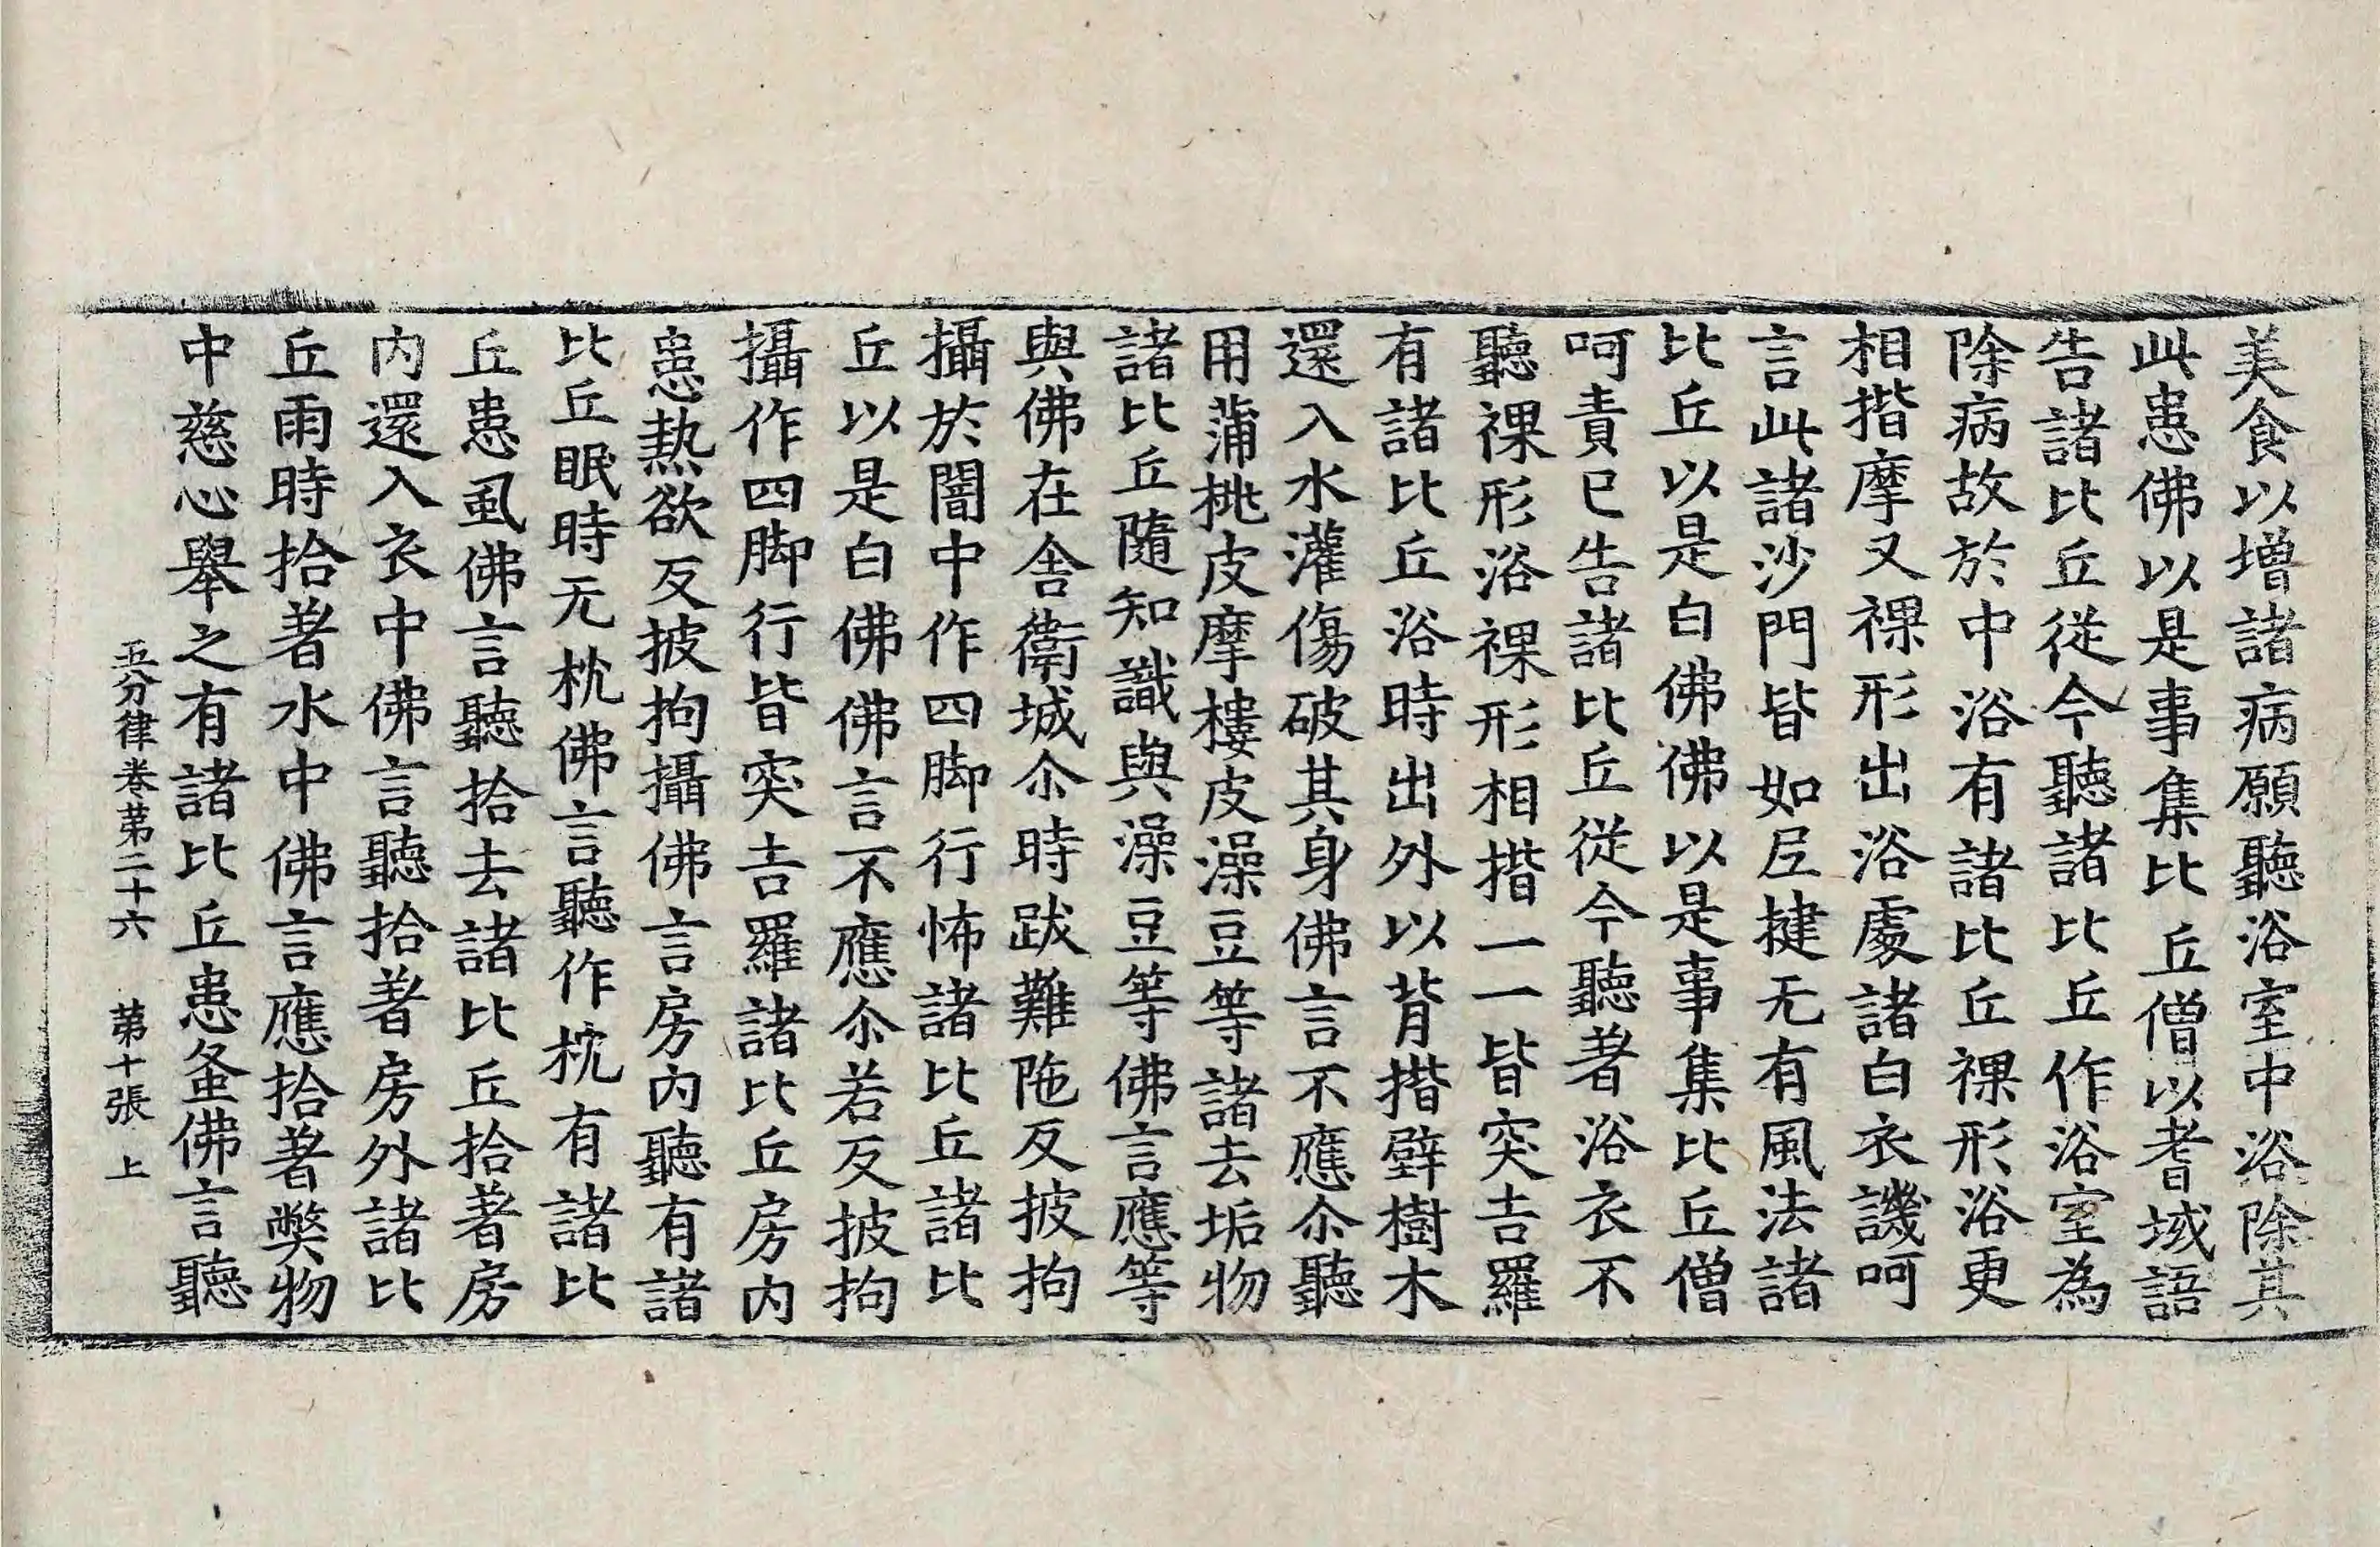 美食以增諸病願聽浴室中浴除其
此患佛以是事集比丘僧以耆域語
告諸比丘從今聽諸比丘作浴室為
除病故於中浴有諸比丘裸形浴更
相揩摩又裸形出浴處諸白衣譏呵
言此諸沙門皆如尼揵无有風法諸
比丘以是白佛佛以是事集比丘僧
呵責已告諸比丘從今聽著浴衣不
聽裸形浴裸形相揩一一皆突吉羅
有諸比丘浴時出外以背揩壁樹木
還入水灌傷破其身佛言不應尒聽
用蒲桃皮摩樓皮澡豆等諸去垢物
諸比丘隨知識與澡豆等佛言應等
與佛在舍衛城尒時跋難陁反披拘
攝於闇中作四脚行怖諸比丘諸比
丘以是白佛佛言不應尒若反披拘
攝作四脚行皆突吉羅諸比丘房内
患熱欲反披拘攝佛言房内聽有諸
比丘眠時无枕佛言聽作枕有諸比
丘患虱佛言聽拾去諸比丘拾著房
内還入衣中佛言聽拾著房外諸比
丘雨時拾著水中佛言應拾著弊物
中慈心舉之有諸比丘患蚤佛言聽
五分律卷第二十六 第十張 上